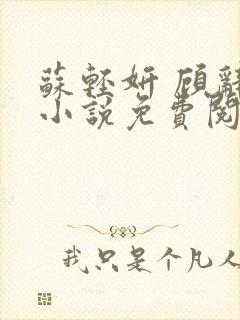 蘇輕妍 顧辭
小說免費閱
我只是个凡人